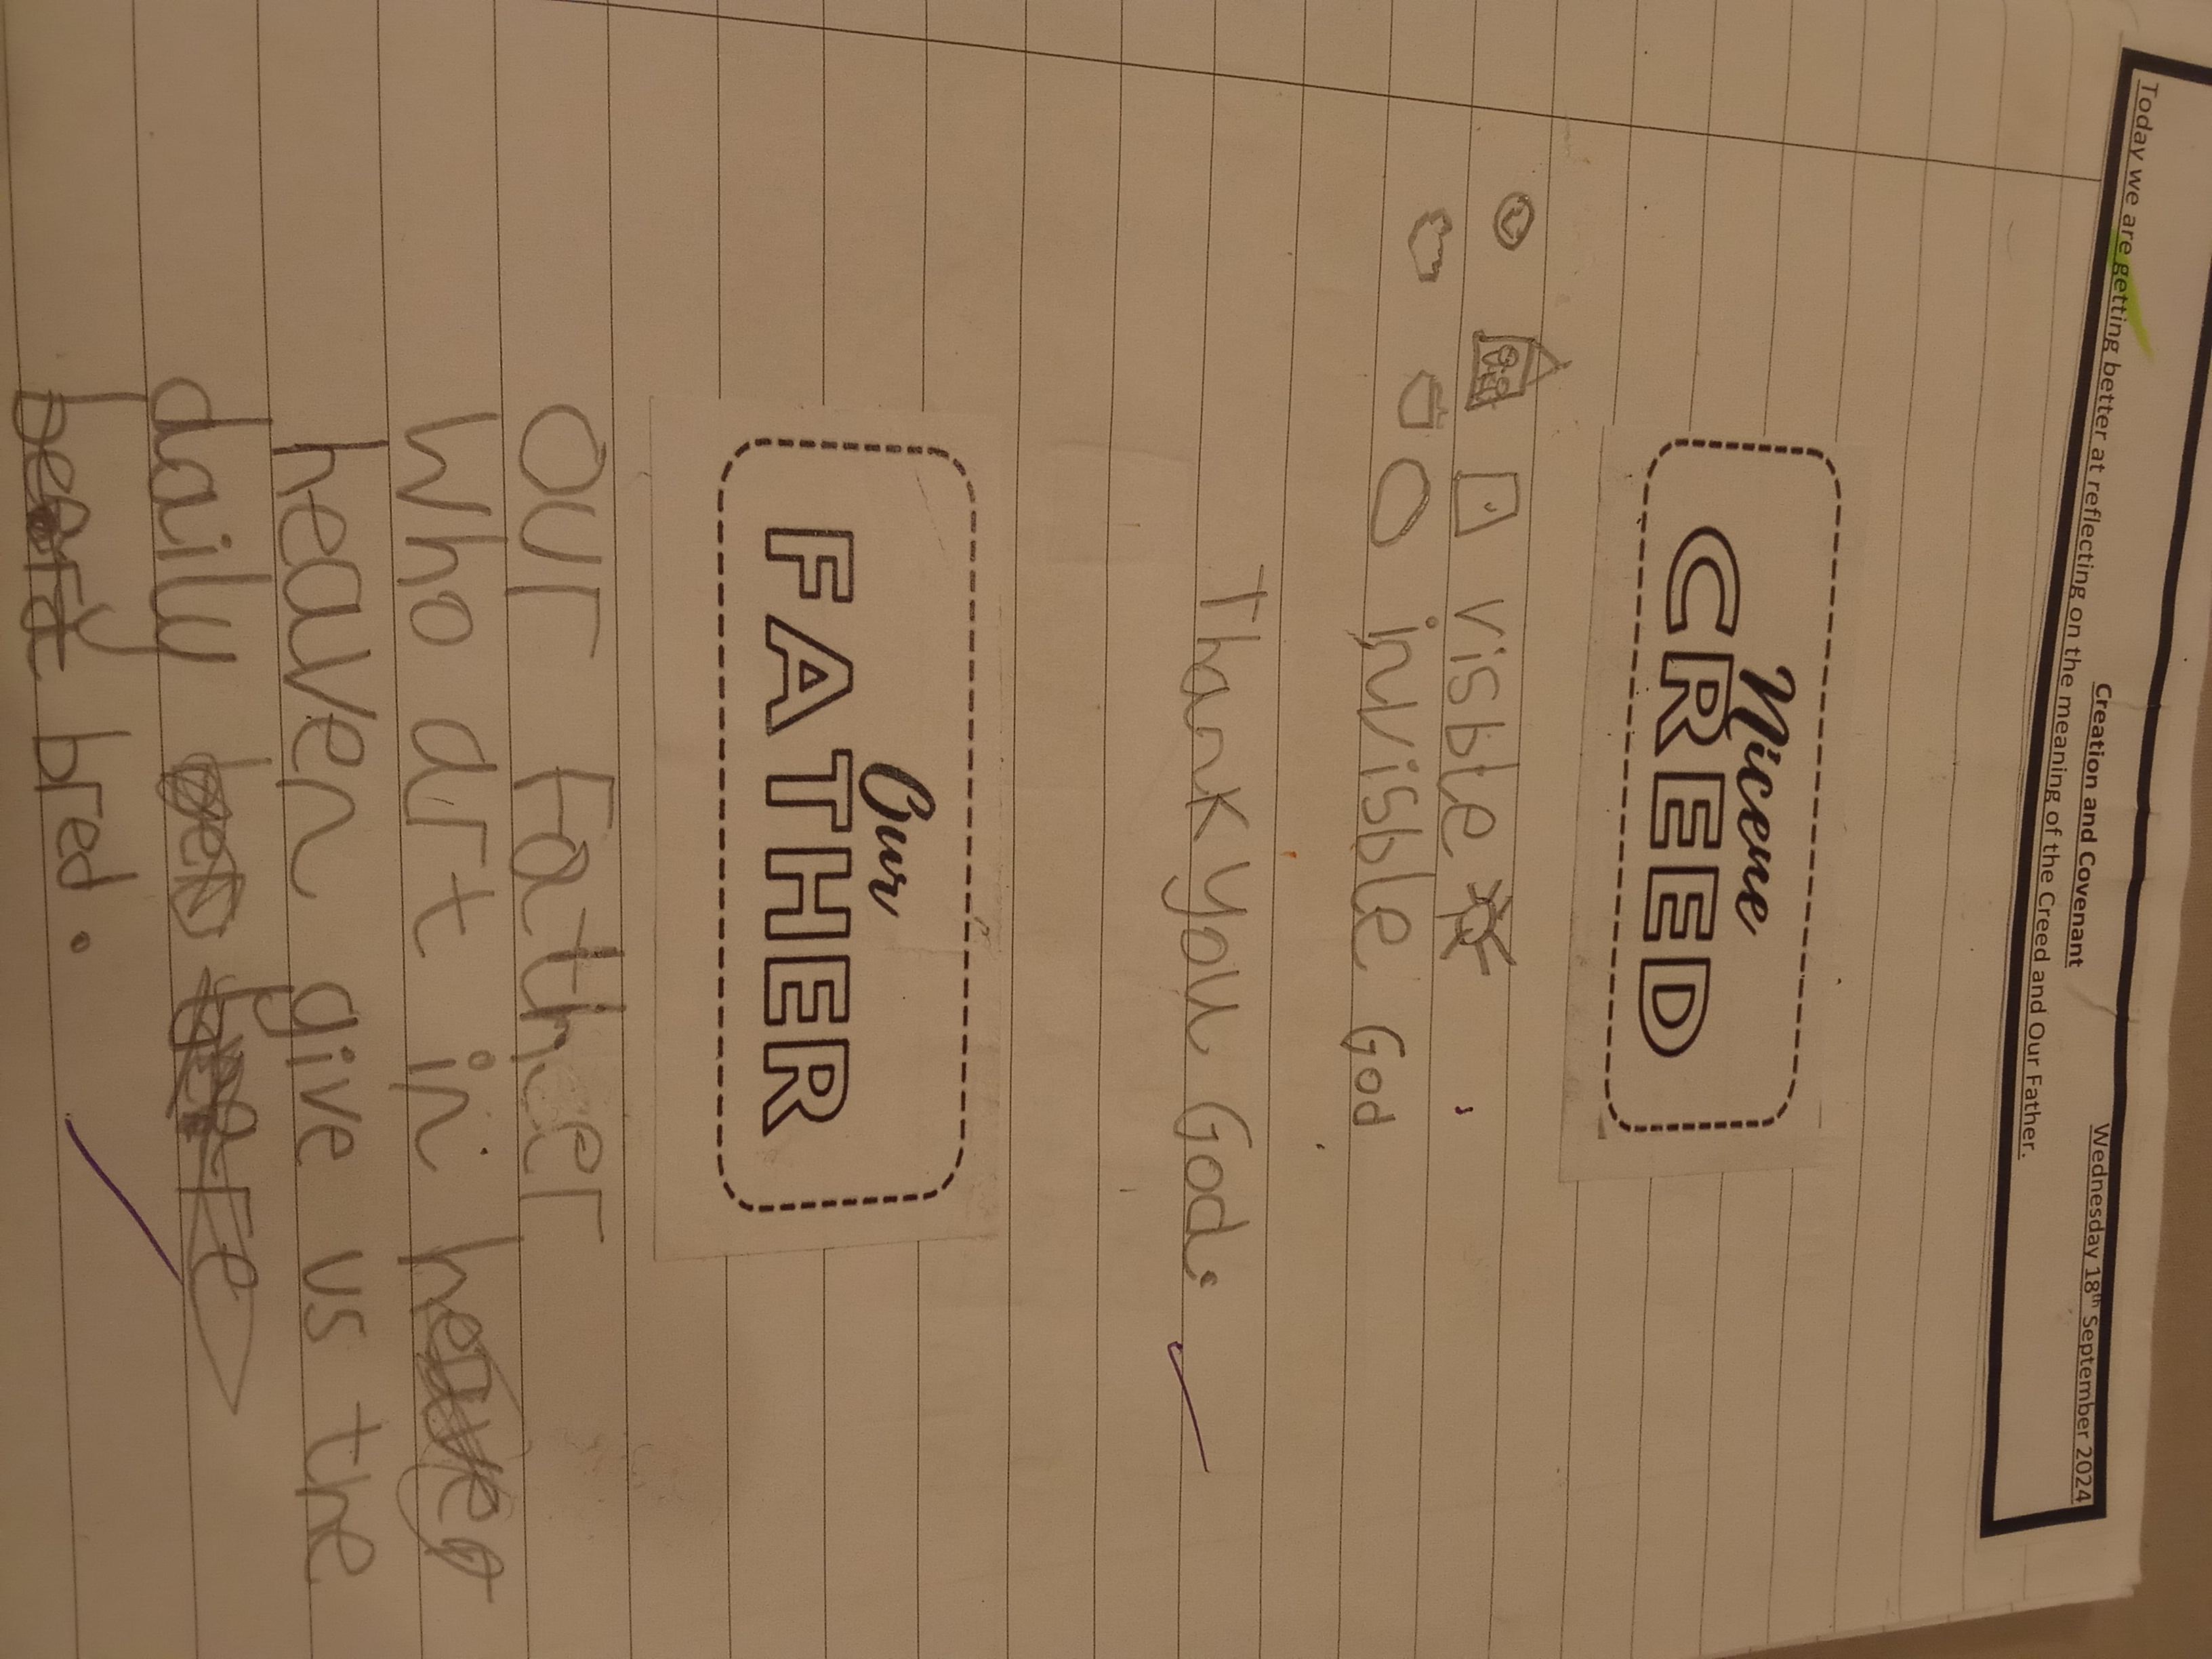 Creation and Covenant Wednesday 18th September 2024
Today we are getting better at reflecting on the meaning of the Creed and Our Father.
Nicene
CREED
visible
invisible God
Thank you God.
Our
FATHER
Our Father
who art in
heaven give us the
daily
bred.